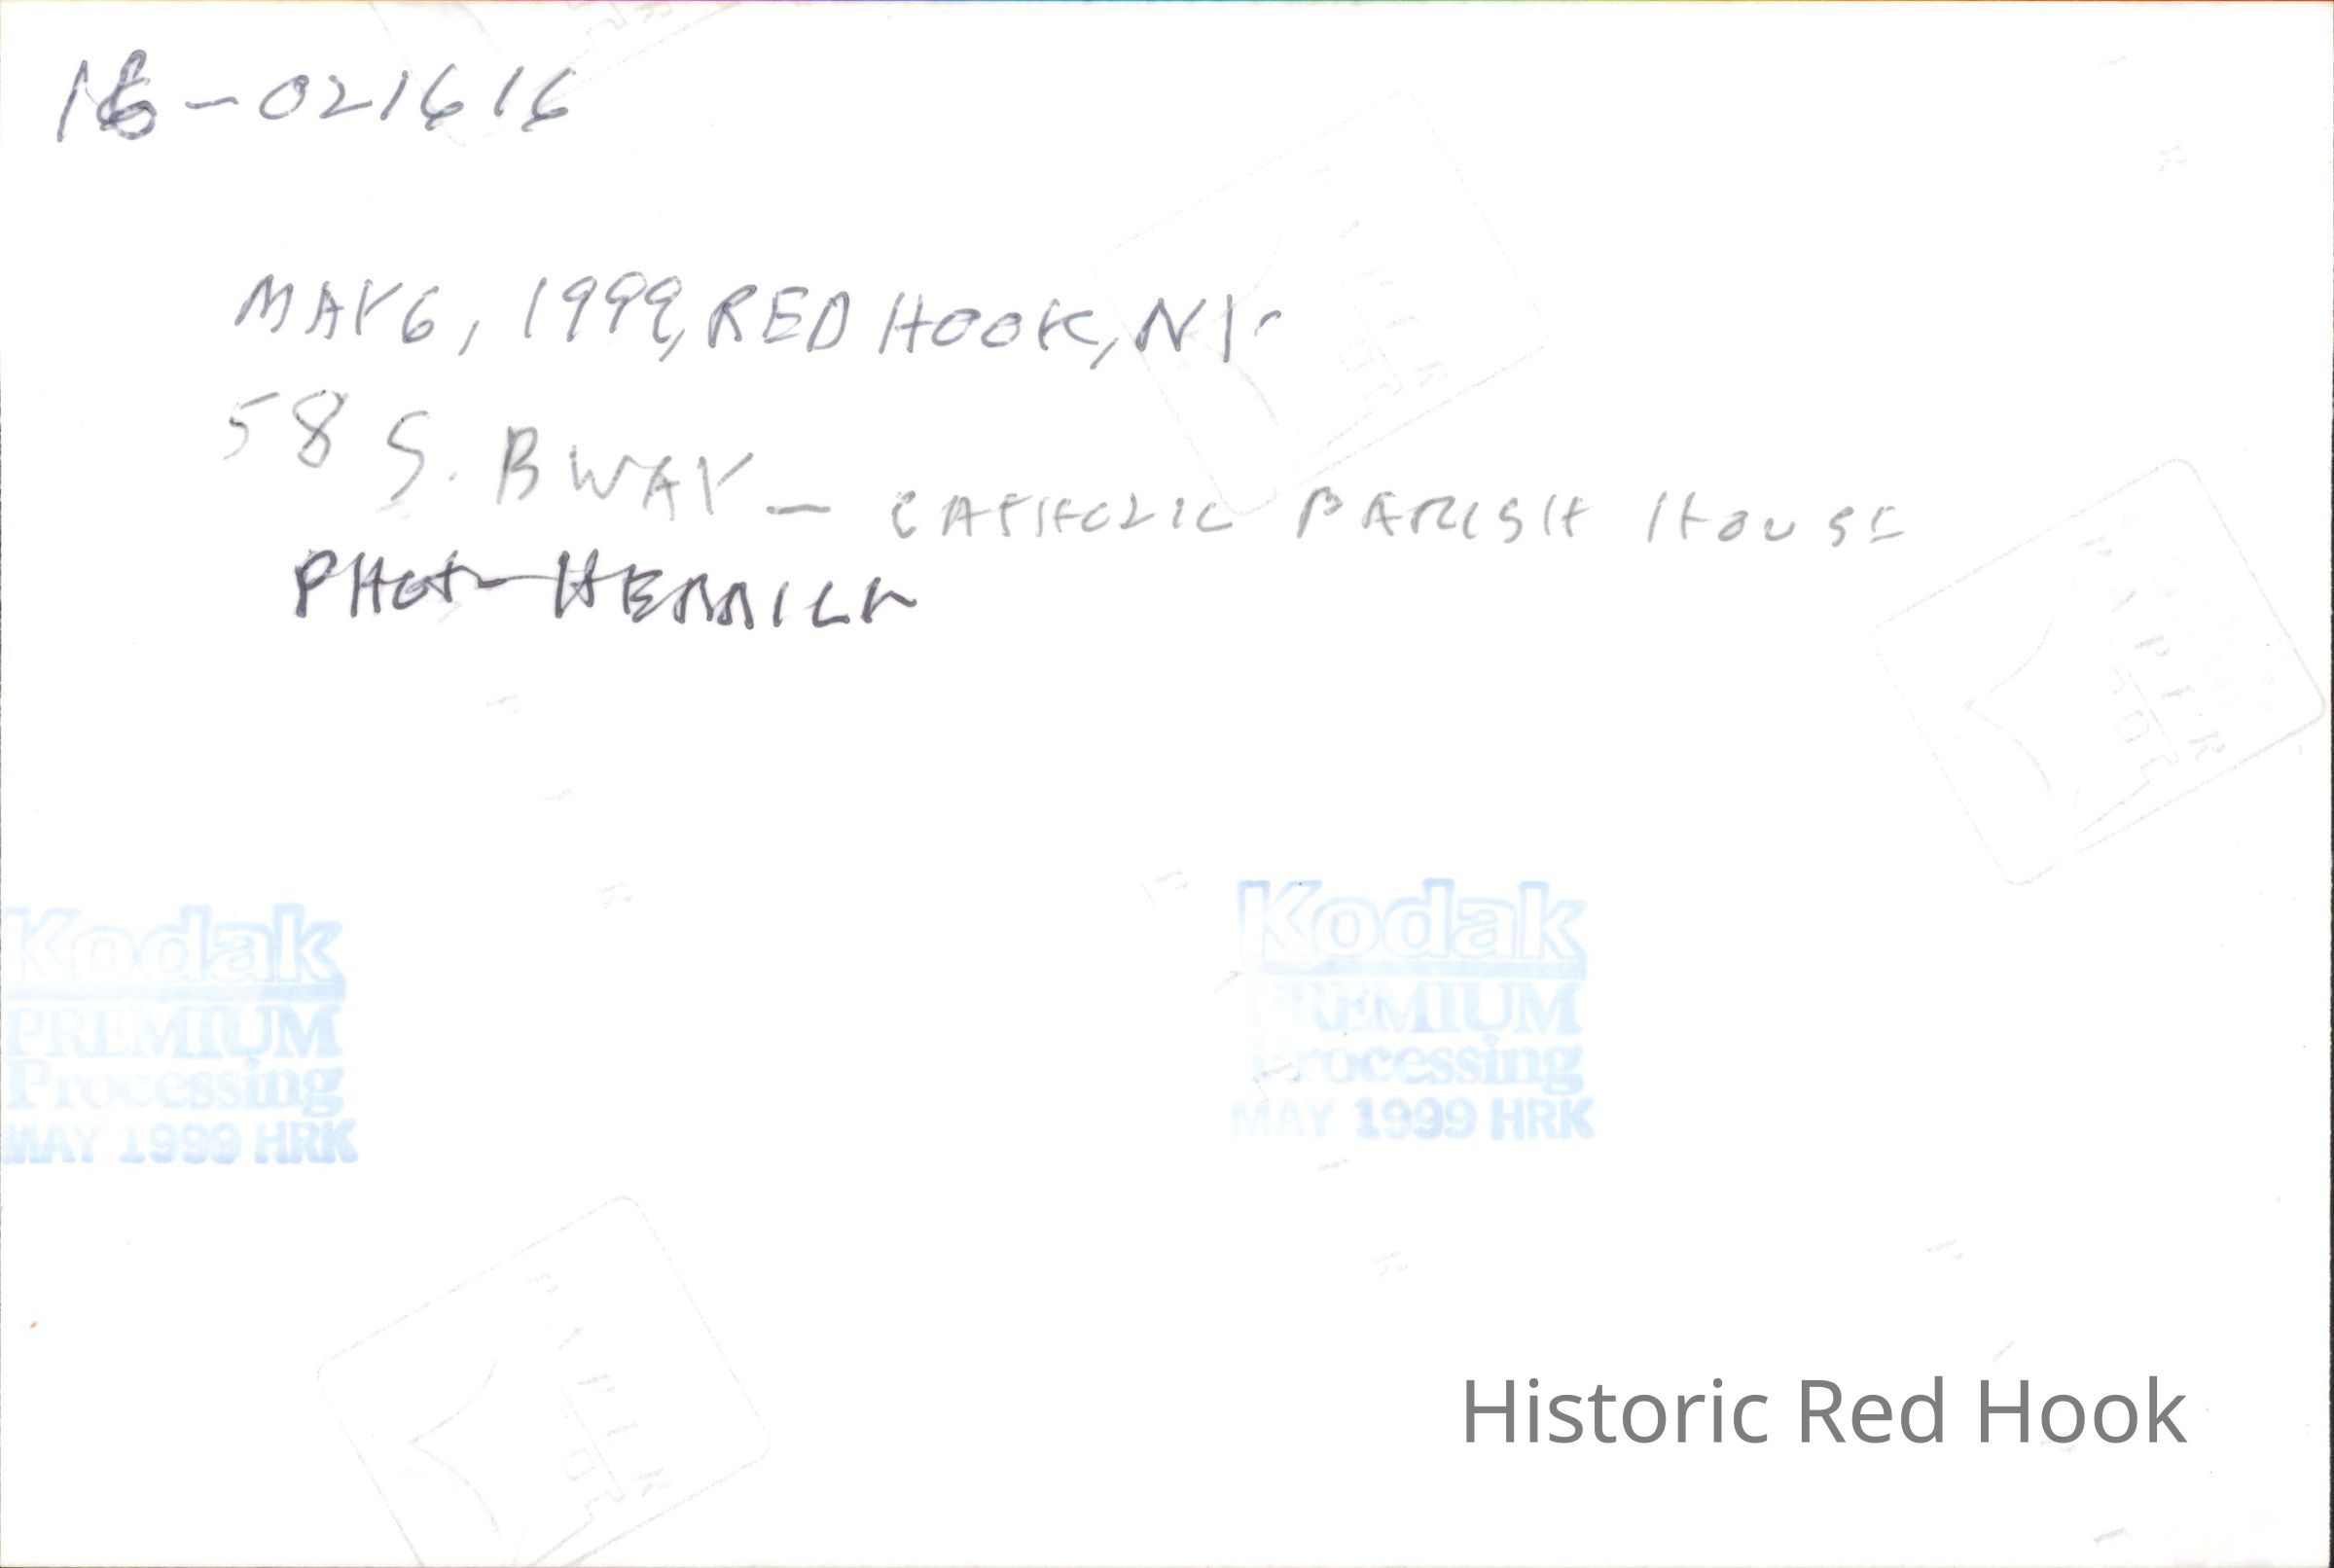 16-021616
MAY 6, 1999, RED HOOK, NY
58 S. BWAY - CATHOLIC PARISH HOUSE
PHOT- HERRICK
Kodak
PREMIUM
Processing
MAY 1999 HRK
Kodak
PREMIUM
Processing
MAY 1999 HRK
Historic Red Hook